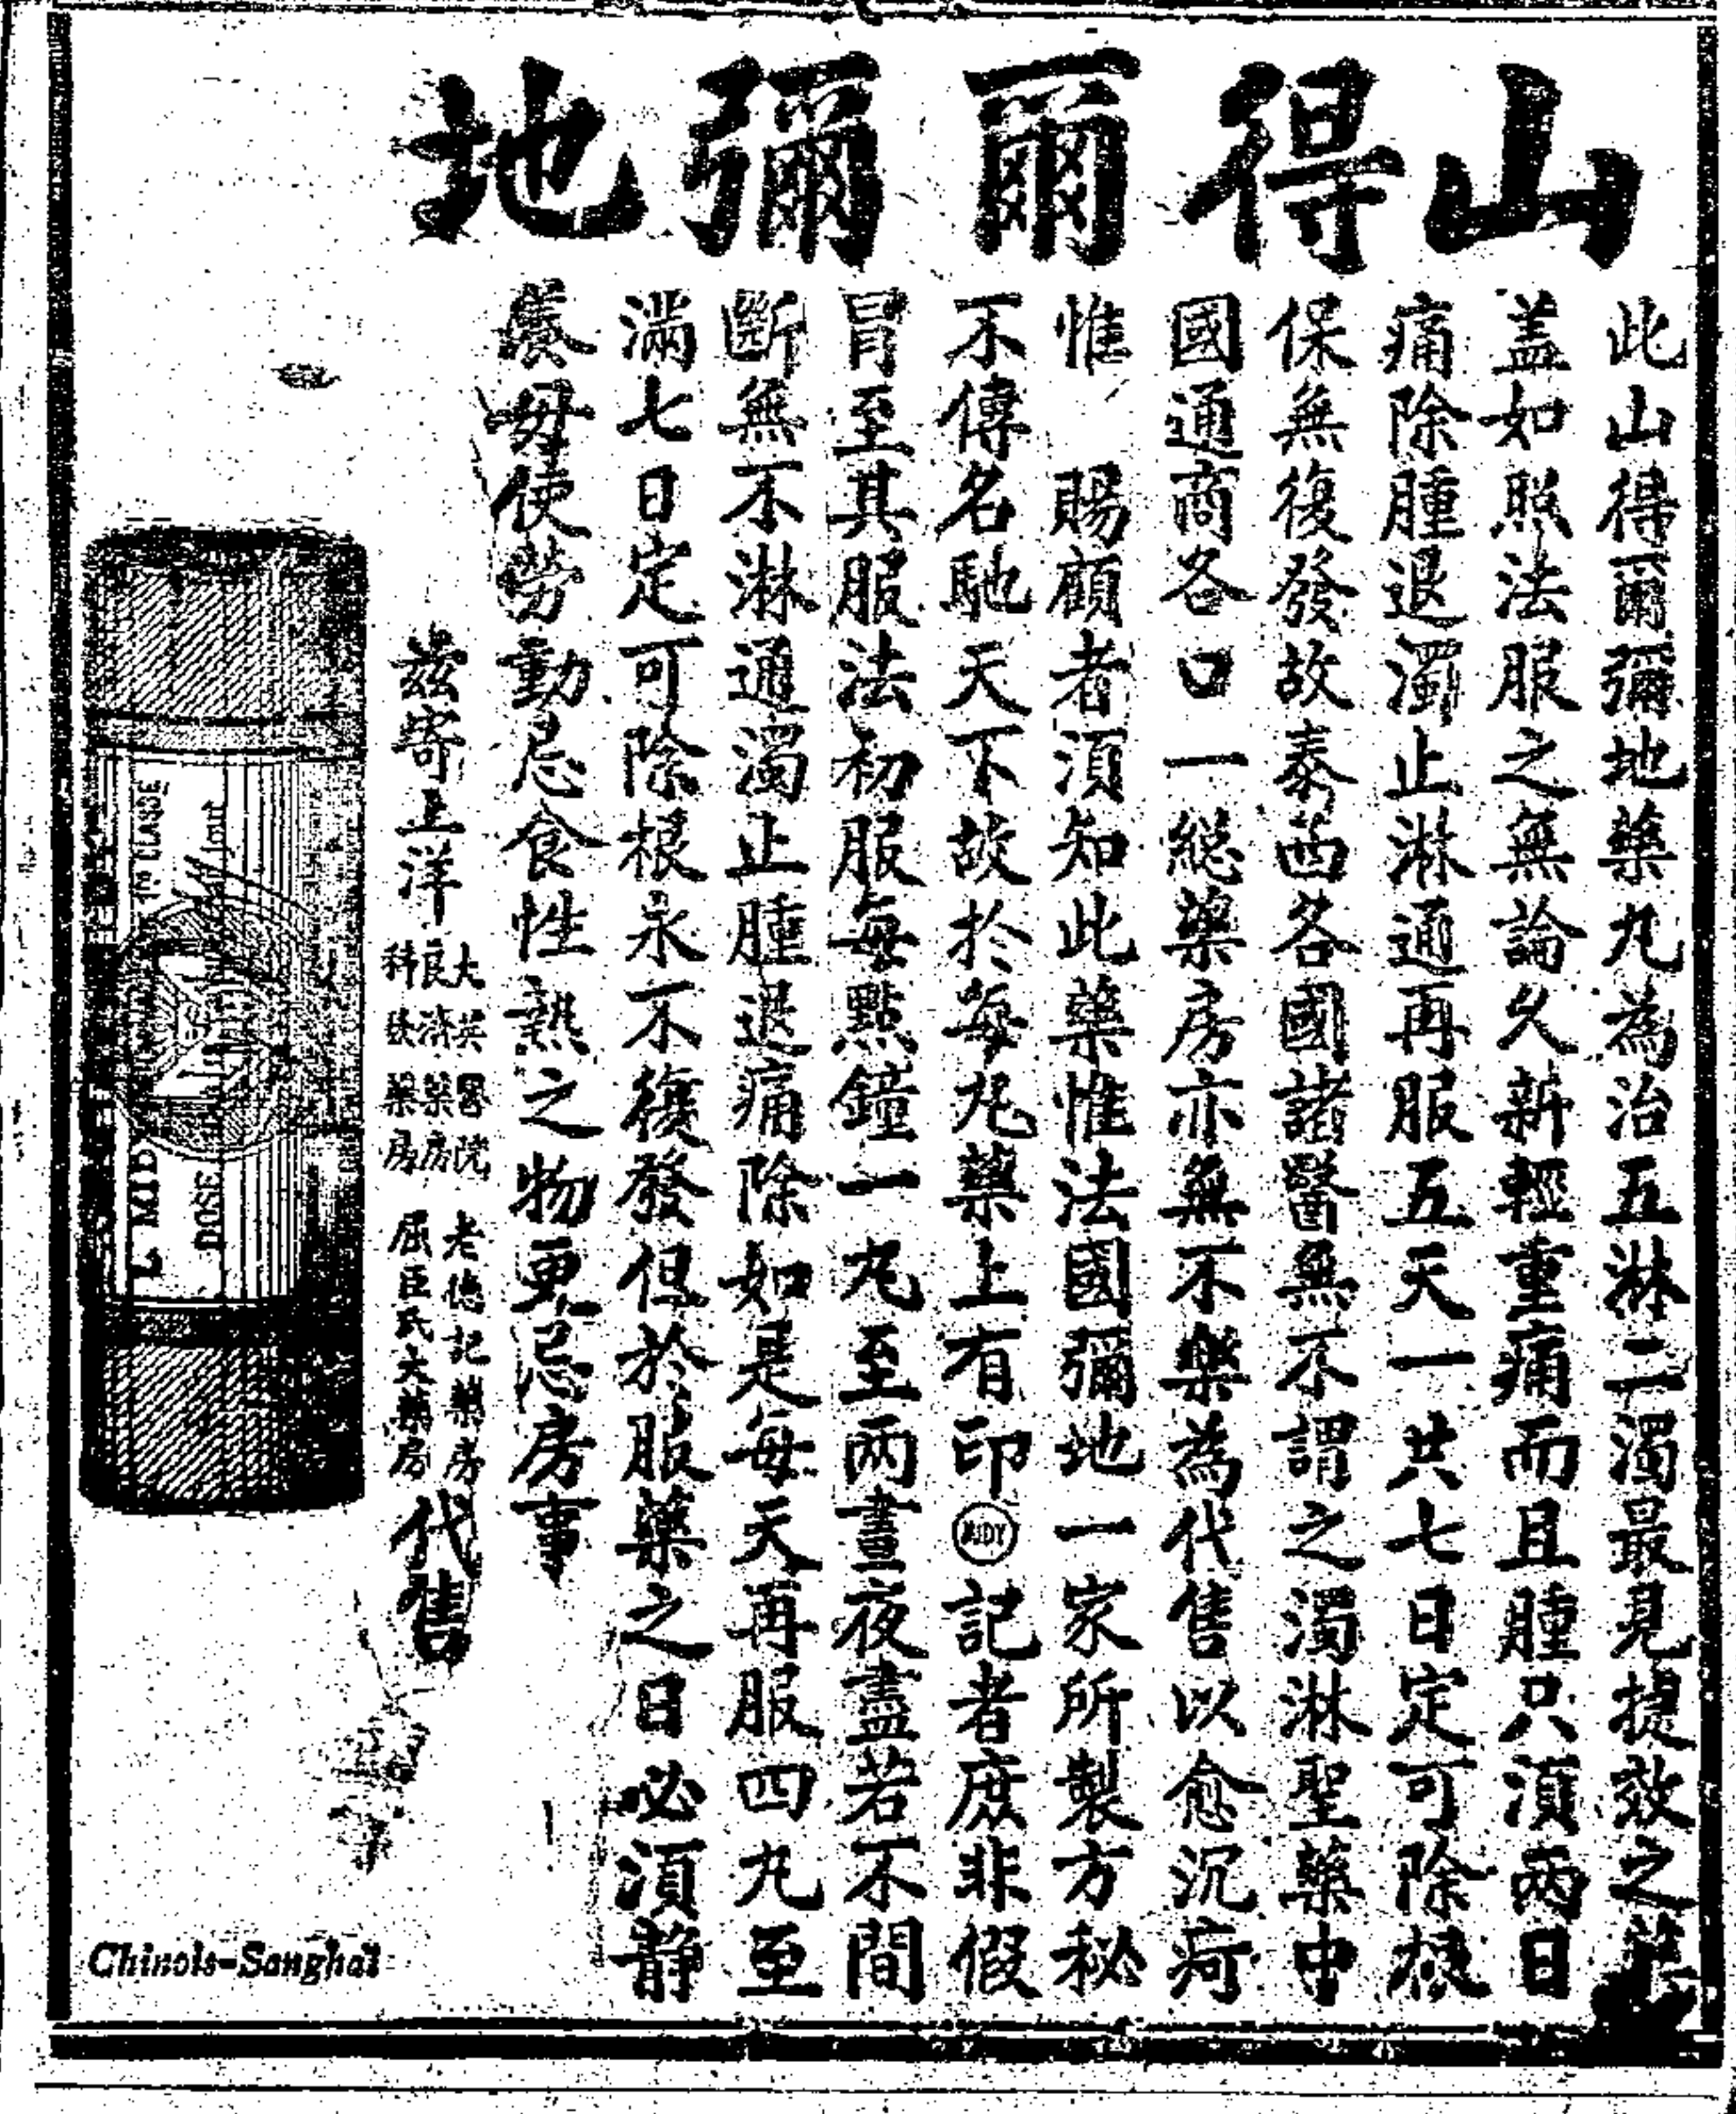 山得爾彌地
此山得爾彌地藥丸為治五淋二濁最見捷效之藥
盖如照法服之無論久新輕重痛而且腫只須兩日
痛除腫退濁止淋通再服五天一共七日定可除根
保無復發故泰西各國諸醫無不謂之濁淋聖藥中
國通商各口一總藥房亦無不樂為代售以愈沉疴
惟 賜顧者須知此藥惟法國彌地一家所製方秘
不傳名馳天下故於每丸藥上有印MIDY記者庶非假
冒至其服法初服每點鐘一丸至兩晝夜盡若不間
斷無不淋通濁止腫退痛除如是每天再服四丸至
滿七日定可除根永不復發但於服藥之日必須静
養毋使勞動忌食性熱之物更忌房事
茲寄上洋
大英醫院
良濟藥房
科發藥房
老德記藥房
屈臣氏大藥房
代售
L MIDY
DOSE
Chinois-Sanghaï